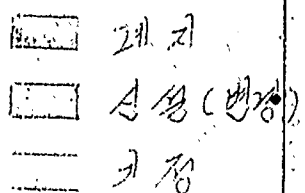 폐지
신설(변경)
기정